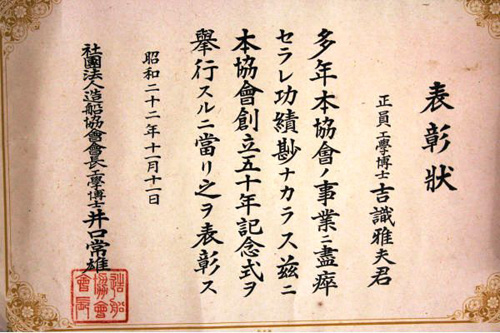 表彰狀
正員 工學博士 吉識雅夫君
多年本協會ノ事業ニ盡瘁
セラレ功績尠ナカラス玆ニ
本協會創立五十年記念式ヲ
擧行スルニ當リ之ヲ表彰ス
昭和二十二年十一月十一日
社團法人造船協會會長 工學博士 井口常雄
造船協會會長